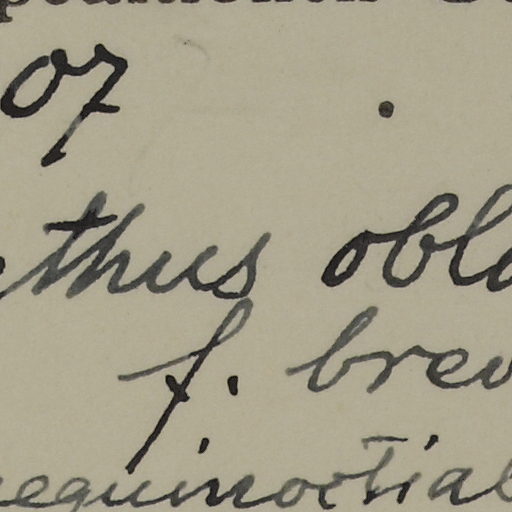 07 .
thus obl
f. brev
equinoctial